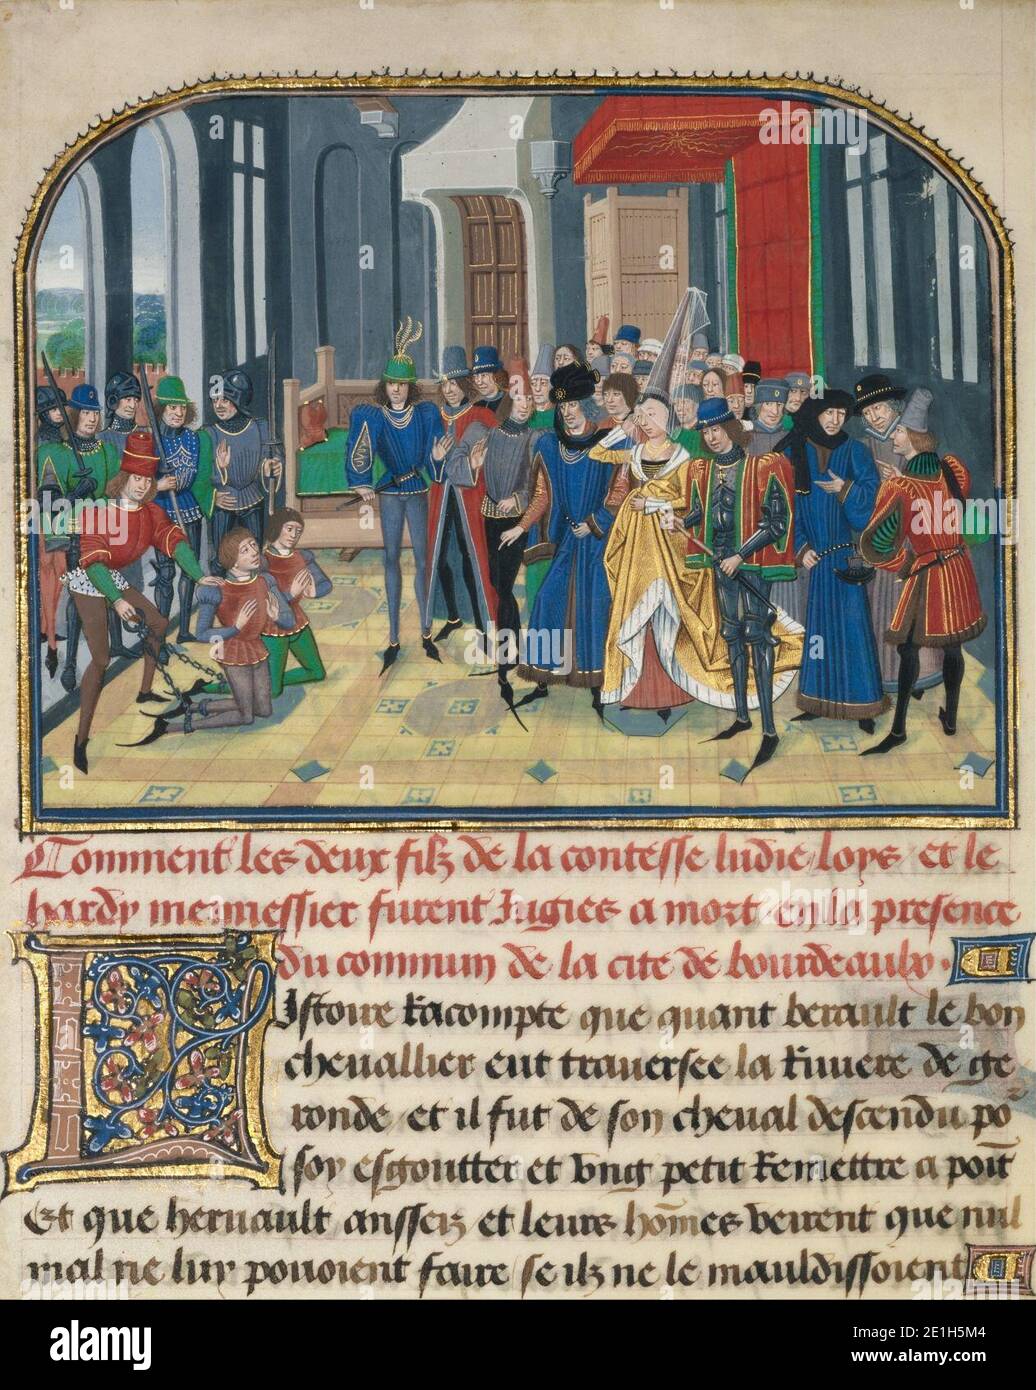 Comment les deux filz de la contesse ludie loys et le
hardy mennessier furent Jugies a mort en la presence
du commun de la cite de bourdeaulx.
LIstoire Racompte que quant berault le bon
cheuallier eut trauersee la Riuiere de ge
ronde et il fut de son cheual descendu pō
soy esgoutter et vng petit Remettre a poīt
Et que heruault ansseiz et leurs hōmes veirent que nul
mal ne luy pouoient faire se ilz ne le mauldissoient
alamy
Image ID: 2E1H5M4
www.alamy.com